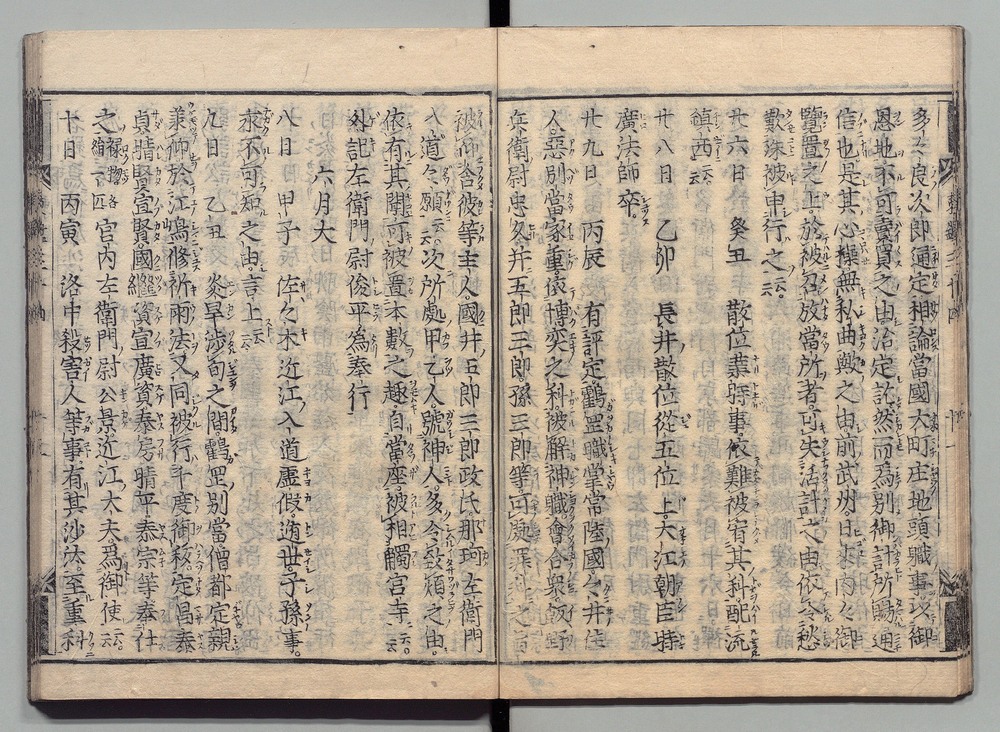 多々良次郎通定相論當國大町庄地頭職事以御
恩地不可賣買之由治定訖然而爲別御計所賜通
信也是其心操無私曲歟之由前武州日來内々御
覽置之上於被召放當所者可失活計之由依令愁
歎殊被申行之云云
廿六日 癸丑 散位業時事依難被宥其科配流
鎮西云云
廿八日 乙卯 長井散位從五位上大江朝臣時
廣法師卒
廿九日 丙辰 有評定鶴罡職掌常陸國々井住
人惡別當家重依博奕之科被解神職會合衆飯野
兵衛尉忠久并五郎三郎孫三郎等可處罪科之旨
被仰含彼等主人國井五郎三郎政氏那珂左衛門
入道々願云云次所處甲乙人號神人多令致煩之由
依有其聞可被置本數之趣自當座被相觸宮寺云云
外記左衛門尉俊平爲奉行
六月大
八日 甲子 佐々木近江入道虚假遁世子孫事
永不可知之由言上云云
九日 乙丑 炎旱渉旬之間鶴罡別當僧都定親
兼仰於江嶋修祈雨法又同被行千度御秡定昌泰
貞晴賢宣賢國繼資宣廣資泰房晴平泰宗等奉仕
之 宮内左衛門尉公景近江大夫爲御使云云
十日 丙寅 洛中殺害人等事有其沙汰至重科